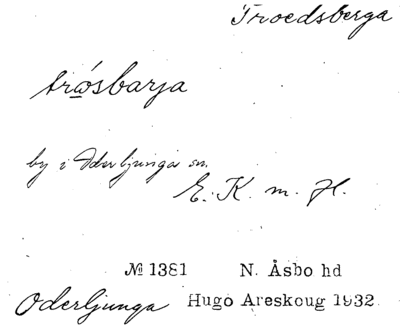 Troedsberga
trǫ́sbarja
by i Oderljunga sn.
E. K. m. fl.
№ 1381 N. Åsbo hd
Oderljunga Hugo Areskoug 1932